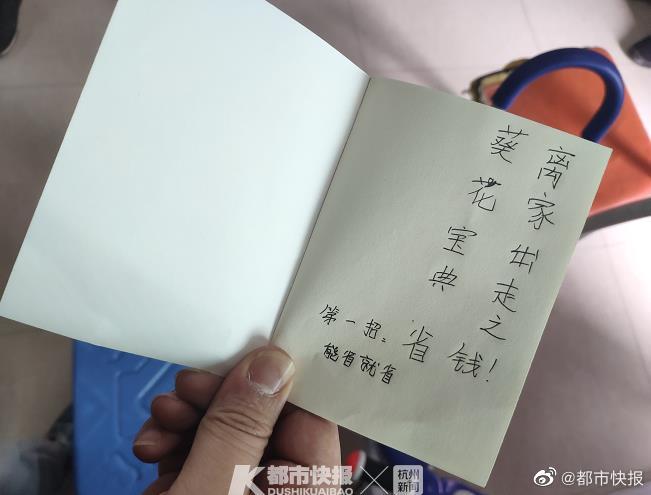 离家出走之
葵花宝典
省钱！
第一招：
能省就省
都市快报
DUSHIKUAIBAO
杭州
新闻
@都市快报